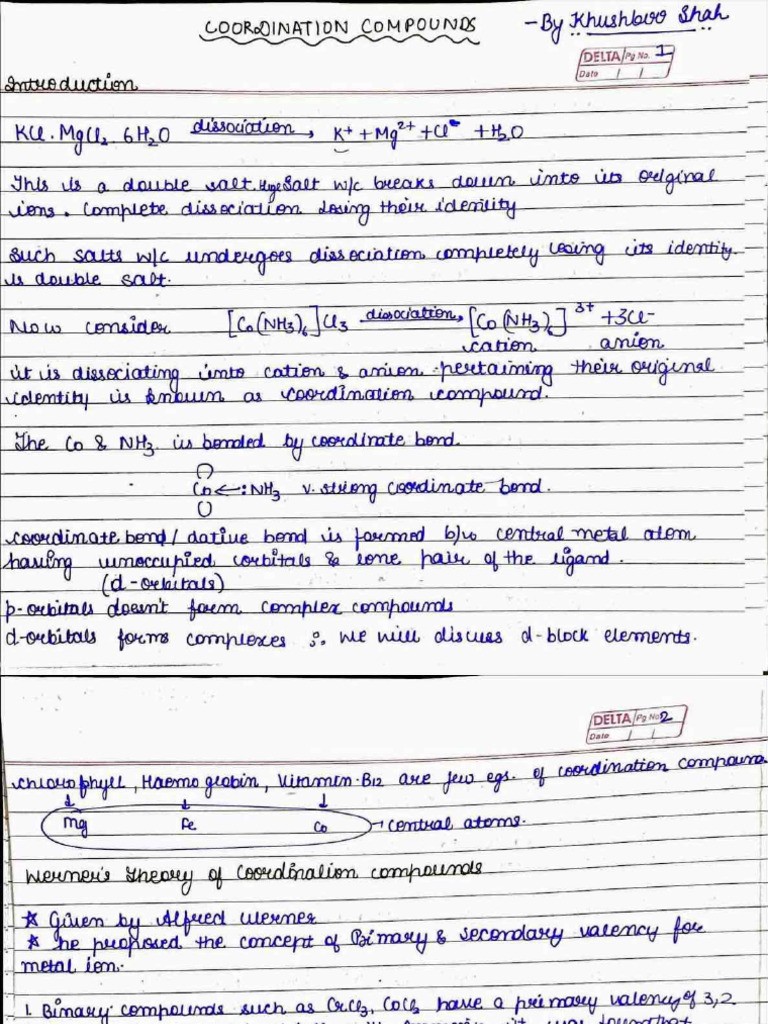 COORDINATION COMPOUNDS
- By Khushboo Shah
DELTA Pg No. 1
Date
Introduction
KCl. MgCl2. 6H2O dissociation → K+ + Mg2+ + Cl- + H2O
This is a double salt. Salt w/c breaks down into its original
ions. Complete dissociation losing their identity
Such salts w/c undergoes dissociation completely losing its identity.
is double salt.
Now consider [Co(NH3)6]Cl3 dissociation → [Co(NH3)6]3+ + 3Cl-
cation anion
it is dissociating into cation & anion pertaining their original
identity is known as coordination compound.
The Co & NH3 is bonded by coordinate bond.
Co ← :NH3 v. strong coordinate bond.
coordinate bond / dative bond is formed b/w central metal atom
having unoccupied orbitals & lone pair of the ligand.
(d-orbitals)
p-orbitals doesn't form complex compounds
d-orbitals forms complexes ∴ we will discuss d-block elements.
DELTA Pg No. 2
Date
Chlorophyll, Haemoglobin, Vitamin-B12 are few egs. of coordination compound.
Mg Fe Co → central atoms.
Werner's Theory of Coordination compounds
* Given by Alfred Werner
* he proposed the concept of Primary & secondary valency for
metal ion.
1. Binary compounds such as CrCl3, CoCl2 have a primary valency of 3,2